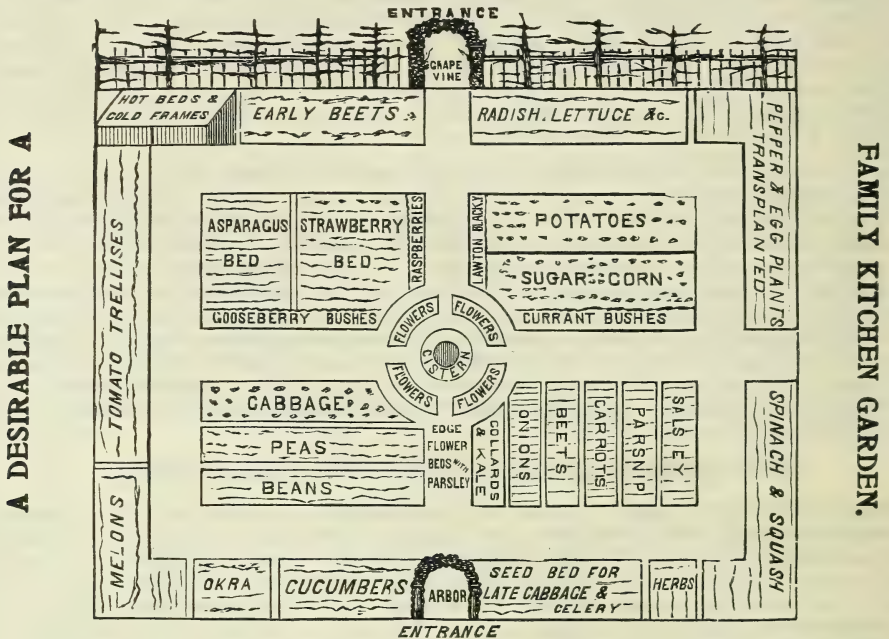 A DESIRABLE PLAN FOR A
FAMILY KITCHEN GARDEN.
ENTRANCE
GRAPE
VINE
HOT BEDS &
COLD FRAMES
EARLY BEETS
RADISH. LETTUCE &c.
PEPPER & EGG PLANTS
TRANSPLANTED
TOMATO TRELLISES
ASPARAGUS
BED
STRAWBERRY
BED
RASPBERRIES
LAWTON BLACKY
POTATOES
SUGAR CORN
GOOSEBERRY BUSHES
CURRANT BUSHES
FLOWERS
FLOWERS
CISTERN
FLOWERS
FLOWERS
CABBAGE
PEAS
BEANS
EDGE
FLOWER
BEDS WITH
PARSLEY
COLLARDS
& KALE
ONIONS
BEETS
CARROTS
PARSNIP
SALSEY
SPINACH & SQUASH
MELONS
OKRA
CUCUMBERS
ARBOR
SEED BED FOR
LATE CABBAGE &
CELERY
HERBS
ENTRANCE